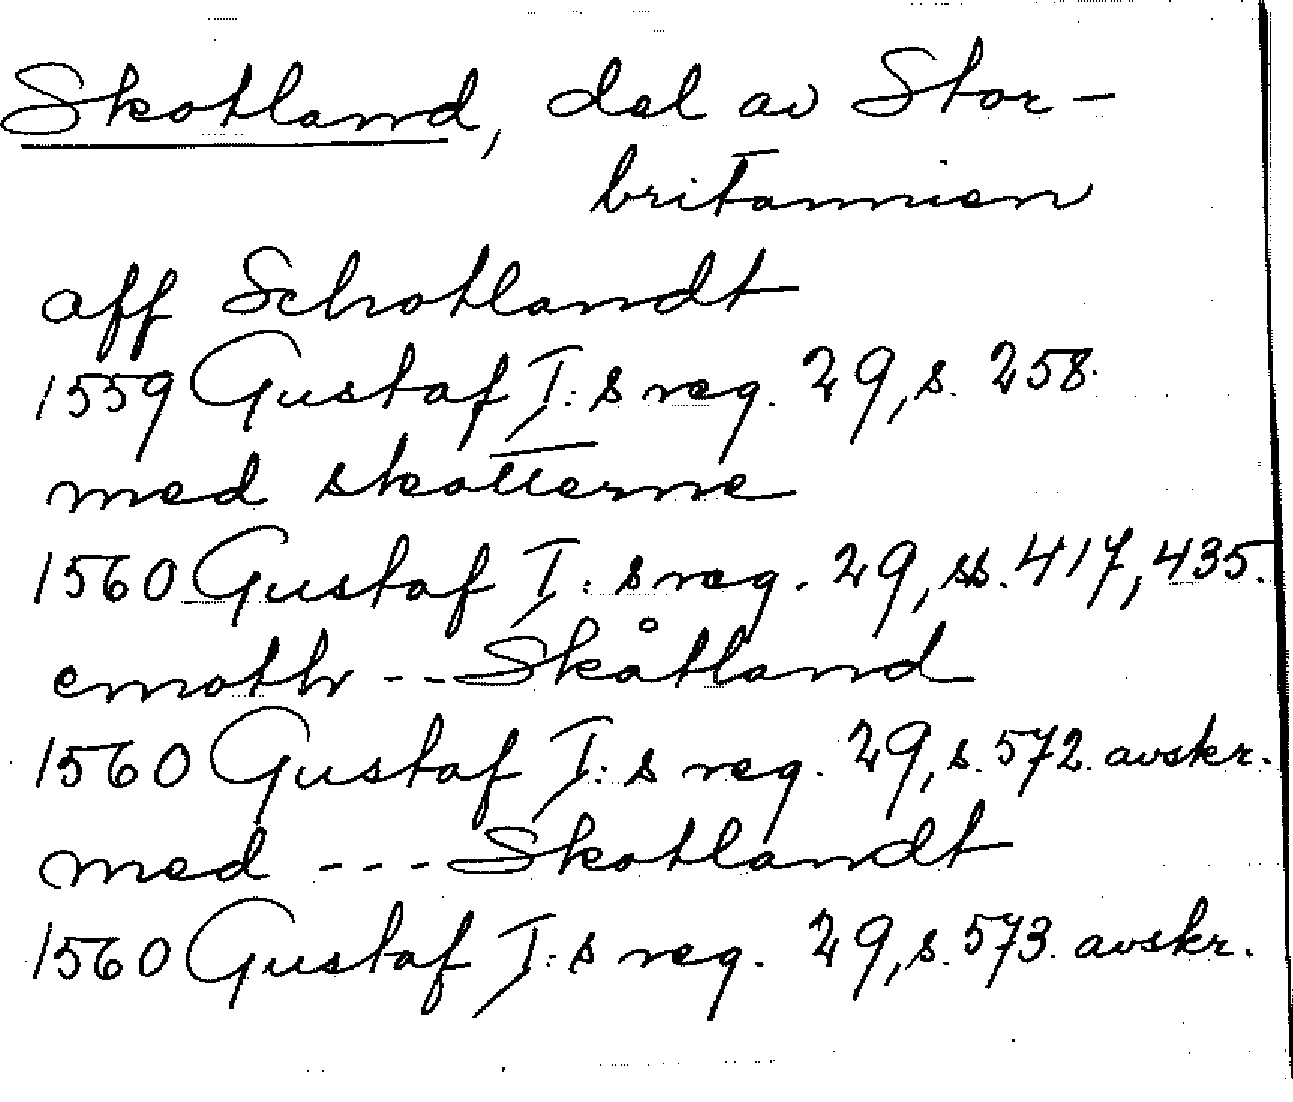 Skotland, del av Stor-
britannien
aff Schotlandt
1559 Gustaf I:s reg. 29, s. 258.
med skotterne
1560 Gustaf I:s reg. 29, ss. 417, 435.
emoth -- Skåtland
1560 Gustaf I:s reg. 29, s. 572. avskr.
med --- Skotlandt
1560 Gustaf I:s reg. 29, s. 573. avskr.